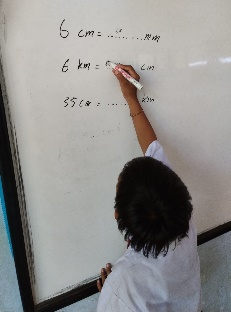 6 cm = ........ mm
6 km = ... cm
35 cm = ......